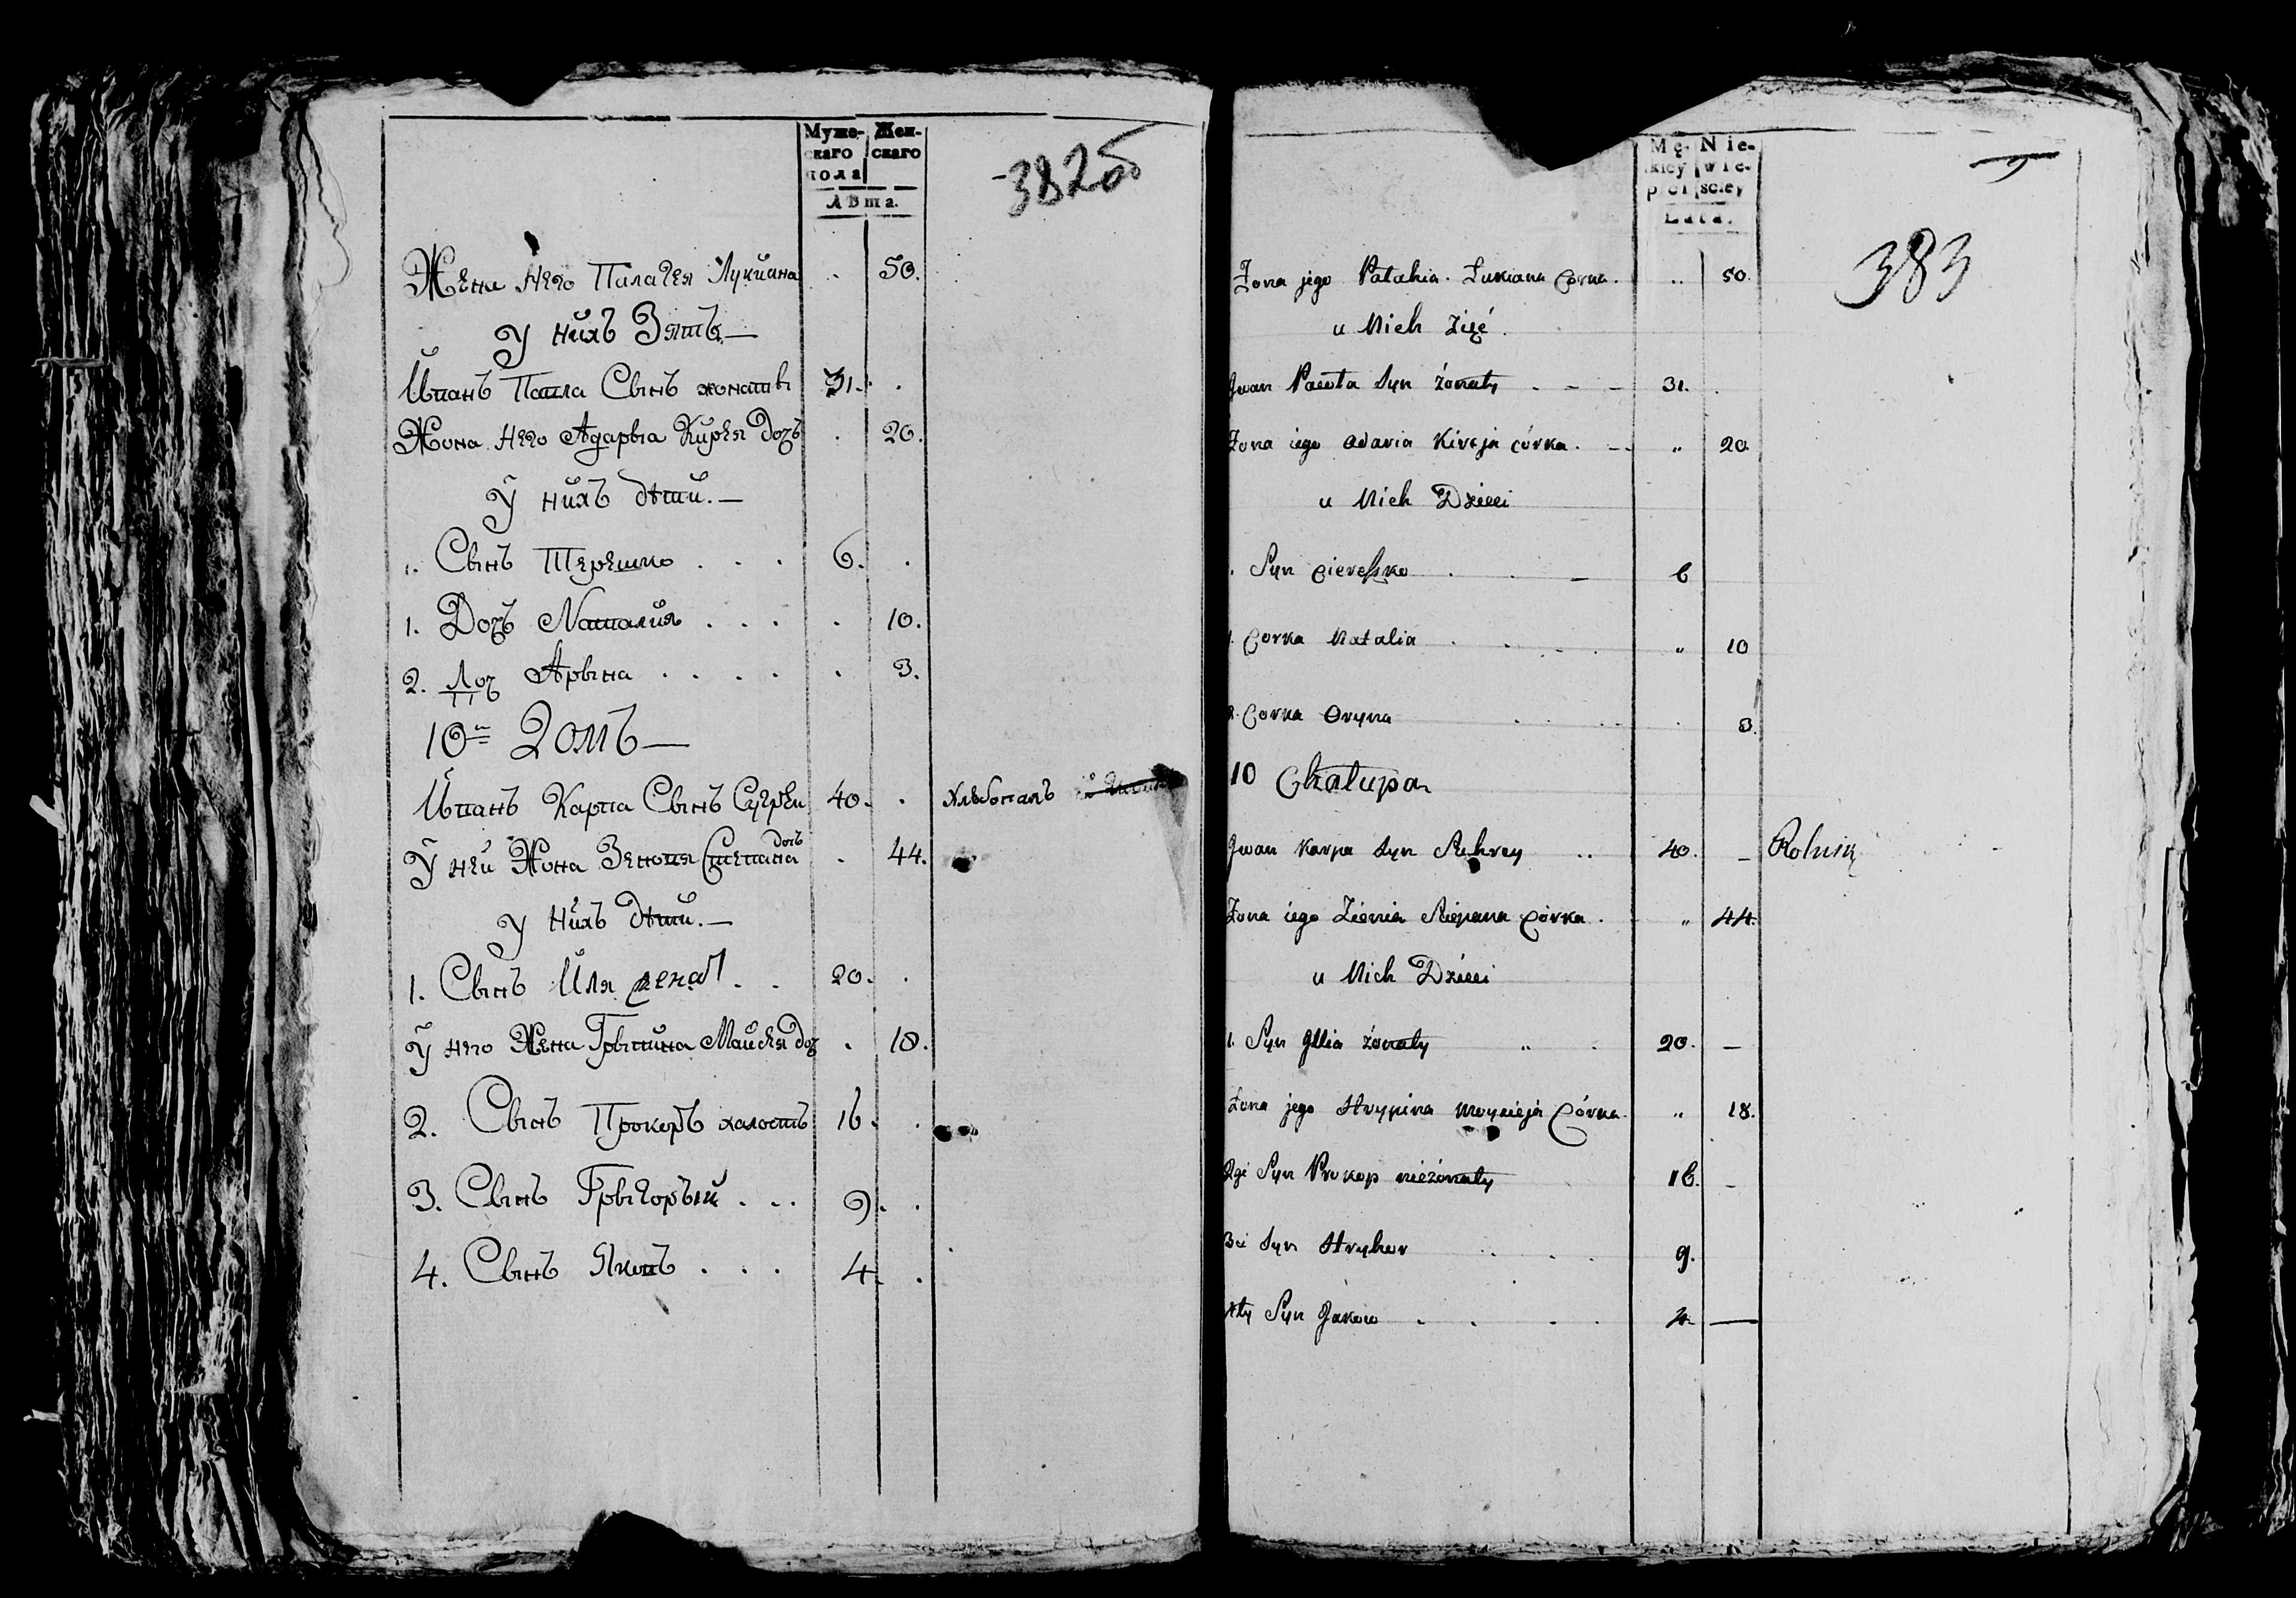 Муже- Жен-
скаго скаго
пола
Лѣта.
382об
Жена Него Палагея Лукиана .. 50.
У нихъ Зять —
Иванъ Павла Сынъ жонаты 31. .
Жона Него Адарыа Кирея Дочъ . 20.
У нихъ дѣти. —
1. Сынъ Терешко . . . 6. .
1. Дочъ Наталия . . . . 10.
2. Доч Арына . . . . . 3.
10й Домъ —
Иванъ Карпа Сынъ 40. . Хлебопашъ
У ней Жона Зеновя Степана дочъ . 44.
У нихъ дѣти. —
1. Сынъ Иля женат . . 20. .
У него Жена Грыпина Майсея доч . 18.
2. Сынъ Прокопъ халостъ 16. .
3. Сынъ Грыгорый . . . 9. .
4. Сынъ Яковъ . . . 4. .
Mę- Nie-
skiey wie-
płci sciey
Lata.
383
Żona jego Pałahia Łukiana Corka. .. 50.
u Nich Zięć.
Jwan Pawła Syn żonaty . - - 31. .
Żona iego Adaria Kireja córka. - - „ 20
u Nich Dzieci
. Syn Ciereszko . . - 6
1. Corka Natalia . . . . „ 10
2. Corka Oryna . . . . 3.
10 Chałupa
Jwan Karpa Syn .. 40. - Rolnik
Żona iego Zienia Sciepana Córka. „ 44.
u Nich Dzieci
1. Syn Illia żonaty „ . 20. —
Żona jego Hrypina Moysieja Córka. „ 18.
2gi Syn Prokop nieżonaty 16. -
3ci Syn Hryhor .. . . 9.
4ty Syn Jakow . . . . 4. —